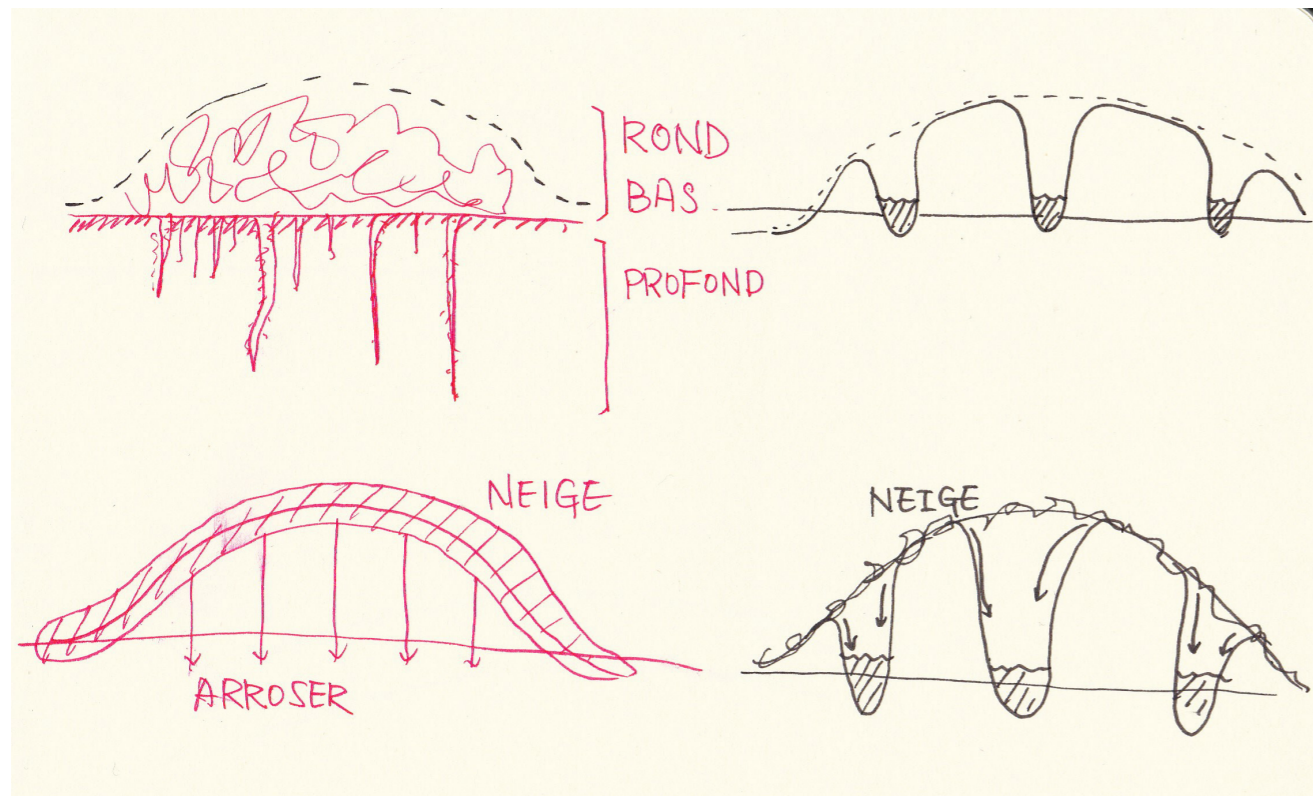 ROND
BAS
PROFOND
NEIGE
ARROSER
NEIGE